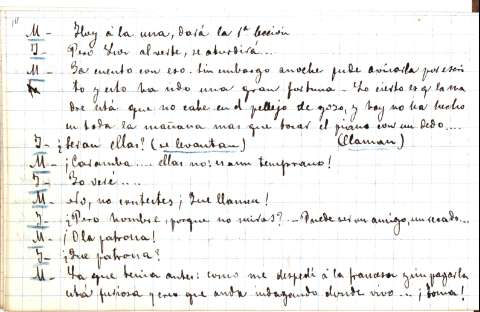 M- Hoy á la una, dará la 1ª lección
J- Pero Luor al verte, se aturdirá...
M- Ya cuento con eso. Sin embargo anoche pude avisarla por escri
to y esto ha sido una gran fortuna - Lo cierto es q la ma
dre está que no cabe en el pellejo de gozo, y hoy no ha hecho
en toda la mañana mas que tocar el piano con un dedo....
J- ¿Seran ellas? (se levantan) (llaman)
M- ¡Caramba.... ellas no: es aun temprano!
J- Yo veré....
M- No, no contestes ¡Que llamen!
J- ¿Pero hombre, porque no miras? - Puede ser un amigo, un recado...
M- ¡O la patrona!
J- ¿Que patrona?
M- La que tenia antes: como me despedí á la francesa y sin pagarla
está furiosa y creo que anda indagando donde vivo... ¡Toma!